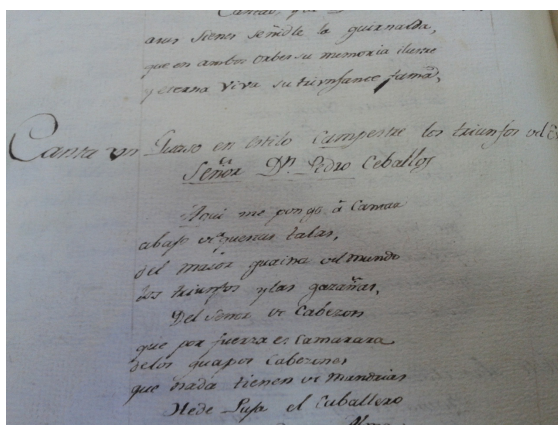 a sus sienes ceñidle la guirnalda,
que en ambos orbes su memoria ilustre
y eterna viva su triunfante fama,
Canta un Guaso en estilo campestre los triunfos del
Señor Dn. Pedro Ceballos
Aqui me pongo à Cantar
abajo de aquestas talas,
del maior guaina del mundo
los triunfos y las gazañas,
Del Señor de Cabezon
que por fuerza es Camarara
delos guapos Cabezones
que nada tienen de mandrias
Hede el Caballero